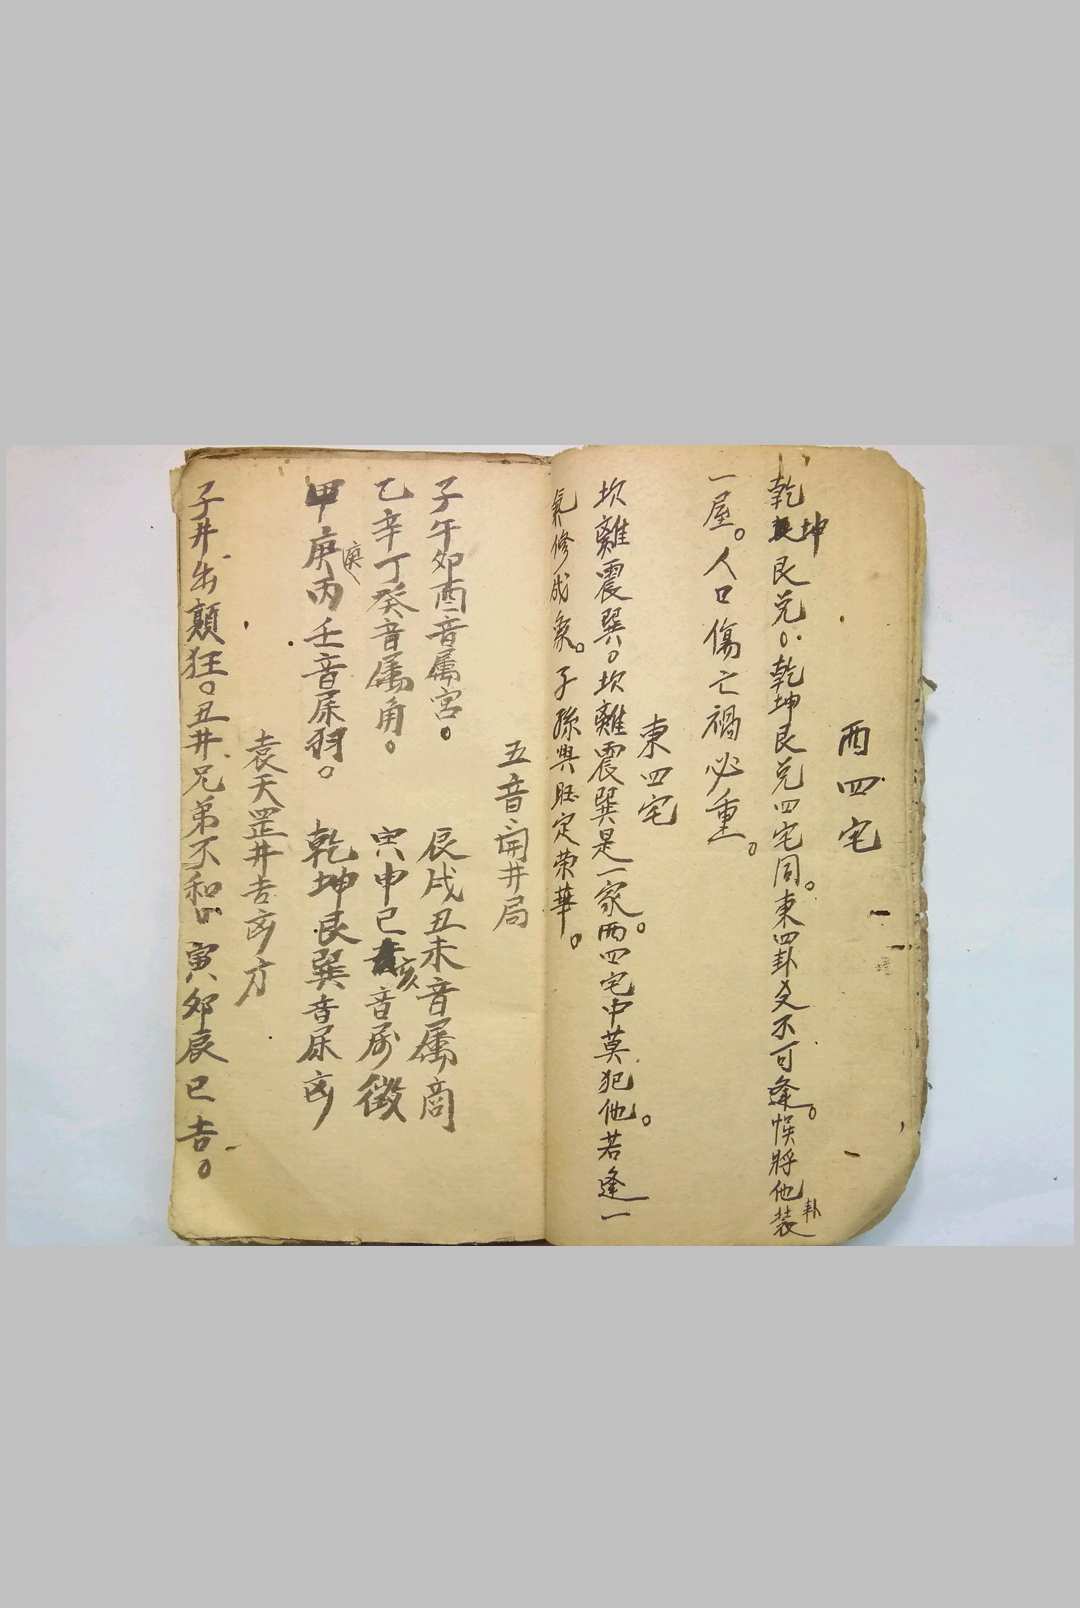 西四宅
乾坤艮兑。乾坤艮兑四宅同。東四卦爻不可逢。悞將他卦装
一屋。人口傷亡禍必重。
東四宅
坎離震巽。坎離震巽是一家。西四宅中莫犯他。若逢一
氣修成象。子孫興旺定荣華。
五音開井局
子午卯酉音属宫。 辰戌丑未音属商
乙辛丁癸音属角。 寅申巳亥音属徵
甲庚丙壬音属羽。 乾坤艮巽音属凶
袁天罡井吉凶方
子井出顛狂。丑井兄弟不和 寅卯辰巳吉。